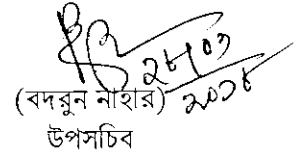 ২৮/০৩
২০১৮
(বদরুন নাহার)
উপসচিব